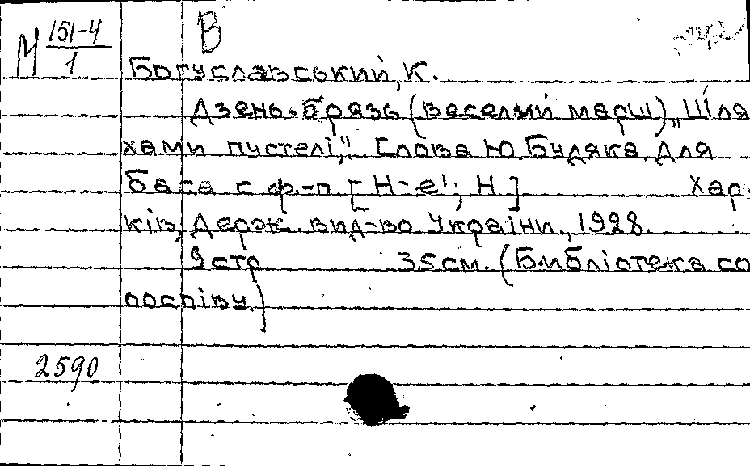 М 151-4/1
В
Богуславський, К.
Дзень-брязь (веселый марш), „Шля
хами пустелі," Слова Ю. Будяка. Для
баса с ф-п [Н-е'; Н.] Хар
ків, Держ. вид-во України, 1928.
9 стр 35 см. (Библіотека со
лоспіву.)
2590